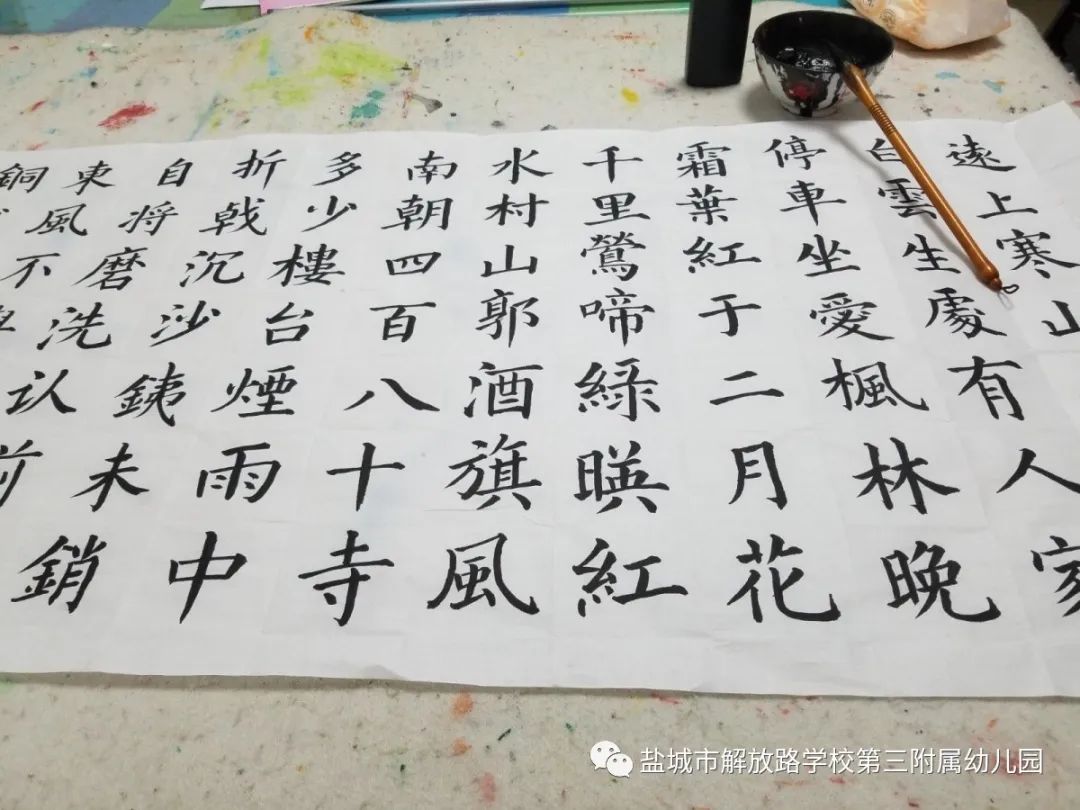 遠上寒山
白雲生處有人家
停車坐愛楓林晚
霜葉紅于二月花
千里鶯啼緑暎紅
水村山郭酒旗風
南朝四百八十寺
多少樓台煙雨中
折戟沉沙銕未銷
自将磨洗认前
東風不
銅
盐城市解放路学校第三附属幼儿园